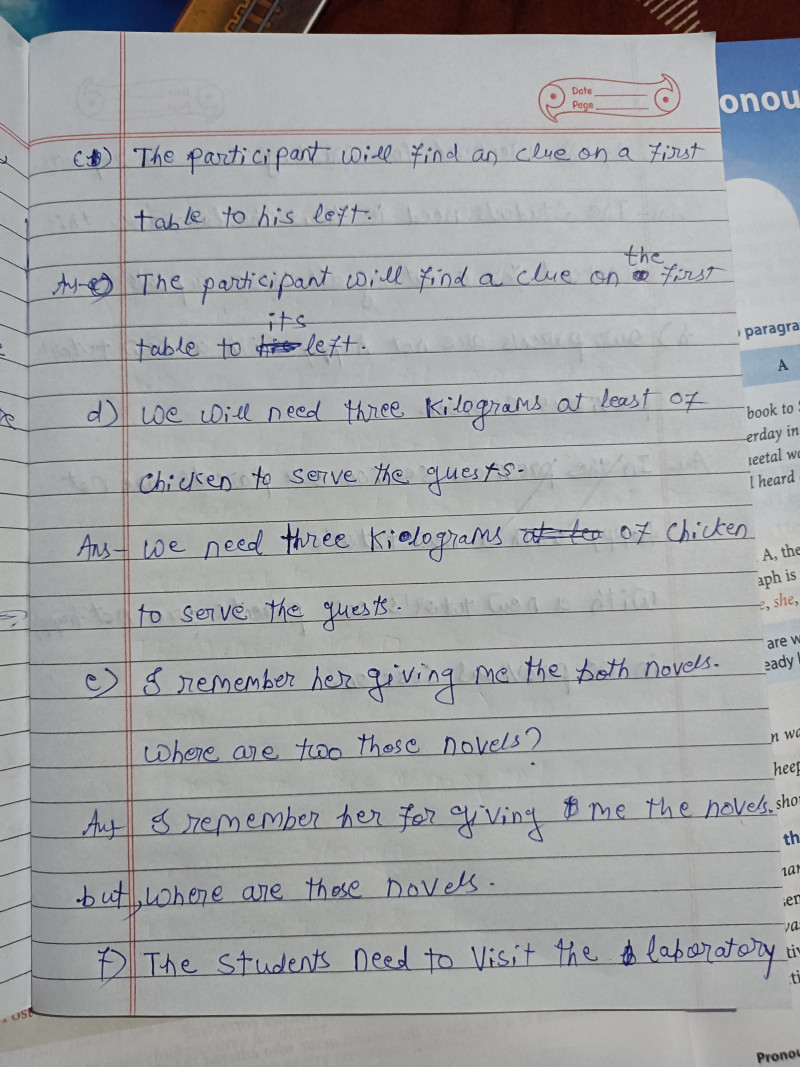 Date
Page
onou
c) The participant will find an clue on a first
table to his left.
Ans-c) The participant will find a clue on the first
table to its left.
d) We will need three kilograms at least of
chicken to serve the guests.
Ans- We need three Kiolograms of chicken
to serve the guests.
e) I remember her giving me the both novels.
Where are two those novels?
Ans I remember her for giving me the novels.
but, where are those novels.
f) The students need to visit the laboratory
paragra
A
book to
erday in
eetal wa
I heard
A, the
aph is
e, she,
are w
eady
n wa
heep
sho
th
Pronou